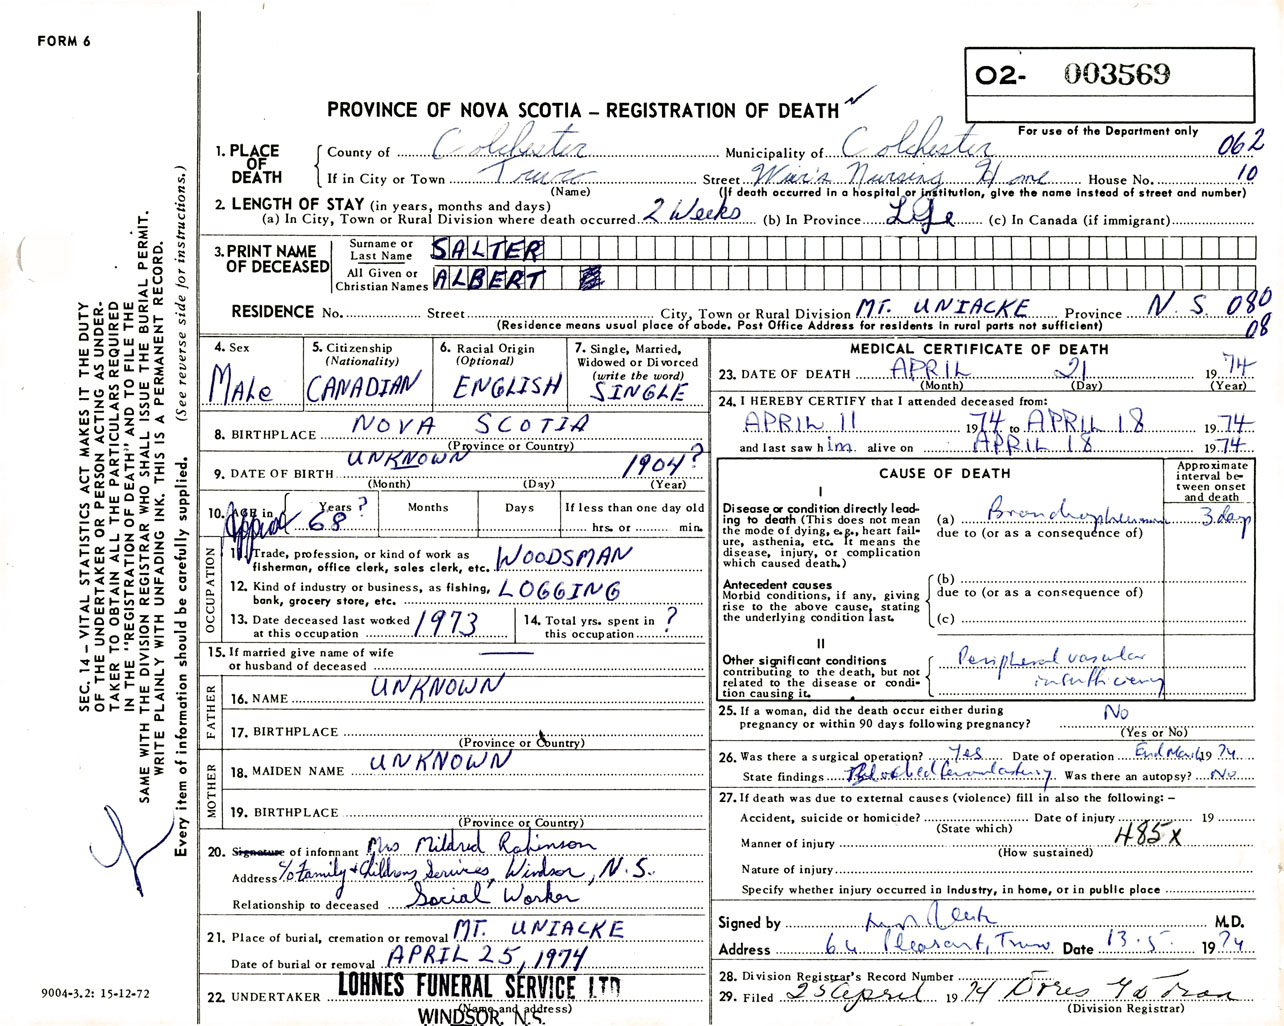 FORM 6
O2- 003569
PROVINCE OF NOVA SCOTIA – REGISTRATION OF DEATH
For use of the Department only
062
1. PLACE OF DEATH
County of Colchester Municipality of Colchester
If in City or Town Truro Street Wier's Nursing Home House No. 10
(Name) (If death occurred in a hospital or institution, give the name instead of street and number)
2. LENGTH OF STAY (in years, months and days)
(a) In City, Town or Rural Division where death occurred. 2 Weeks (b) In Province Life (c) In Canada (if immigrant)
3. PRINT NAME OF DECEASED
Surname or Last Name SALTER
All Given or Christian Names ALBERT
RESIDENCE No. Street City, Town or Rural Division MT. UNIACKE Province N.S. 080
(Residence means usual place of abode. Post Office Address for residents in rural parts not sufficient)
08
4. Sex
Male
5. Citizenship
(Nationality)
CANADIAN
6. Racial Origin
(Optional)
ENGLISH
7. Single, Married,
Widowed or Divorced
(write the word)
SINGLE
8. BIRTHPLACE NOVA SCOTIA
(Province or Country)
9. DATE OF BIRTH UNKNOWN 1904?
(Month) (Day) (Year)
10. AGE in Years ? Months Days If less than one day old
Approx 68 hrs. or min.
OCCUPATION
11. Trade, profession, or kind of work as
fisherman, office clerk, sales clerk, etc. WOODSMAN
12. Kind of industry or business, as fishing,
bank, grocery store, etc. LOGGING
13. Date deceased last worked
at this occupation 1973
14. Total yrs. spent in
this occupation ?
15. If married give name of wife
or husband of deceased
FATHER
16. NAME UNKNOWN
17. BIRTHPLACE
(Province or Country)
MOTHER
18. MAIDEN NAME UNKNOWN
19. BIRTHPLACE
(Province or Country)
20. Signature of informant Mrs Mildred Robinson
Address c/o Family & Childrens Services, Windsor, N.S.
Relationship to deceased Social Worker
21. Place of burial, cremation or removal MT. UNIACKE
Date of burial or removal APRIL 25, 1974
22. UNDERTAKER LOHNES FUNERAL SERVICE LTD
(Name and address)
WINDSOR, N.S.
MEDICAL CERTIFICATE OF DEATH
23. DATE OF DEATH APRIL 21 1974
(Month) (Day) (Year)
24. I HEREBY CERTIFY that I attended deceased from:
APRIL 11 1974 to APRIL 18 1974
and last saw him alive on APRIL 18 1974
CAUSE OF DEATH
Approximate
interval be-
tween onset
and death
I
Disease or condition directly lead-
ing to death (This does not mean
the mode of dying, e.g., heart fail-
ure, asthenia, etc. It means the
disease, injury, or complication
which caused death.)
(a) Bronchopneumonia 3 days
due to (or as a consequence of)
Antecedent causes
Morbid conditions, if any, giving
rise to the above cause, stating
the underlying condition last.
(b)
due to (or as a consequence of)
(c)
II
Other significant conditions
contributing to the death, but not
related to the disease or condi-
tion causing it.
Peripheral vascular
insufficiency
25. If a woman, did the death occur either during
pregnancy or within 90 days following pregnancy? No
(Yes or No)
26. Was there a surgical operation? Yes Date of operation End March 1974
State findings Blocked femoral artery Was there an autopsy? No
27. If death was due to external causes (violence) fill in also the following: –
Accident, suicide or homicide? Date of injury 19
(State which)
485X
Manner of injury
(How sustained)
Nature of injury
Specify whether injury occurred in industry, in home, or in public place
Signed by M.D.
Address 64 Pleasant, Truro Date 13.5. 1974
28. Division Registrar's Record Number
29. Filed 25 April 1974
(Division Registrar)
SEC. 14 – VITAL STATISTICS ACT MAKES IT THE DUTY
OF THE UNDERTAKER OR PERSON ACTING AS UNDER-
TAKER TO OBTAIN ALL THE PARTICULARS REQUIRED
IN THE "REGISTRATION OF DEATH" AND TO FILE THE
SAME WITH THE DIVISION REGISTRAR WHO SHALL ISSUE THE BURIAL PERMIT.
WRITE PLAINLY WITH UNFADING INK. THIS IS A PERMANENT RECORD.
Every item of information should be carefully supplied. (See reverse side for instructions.)
9004-3.2: 15-12-72